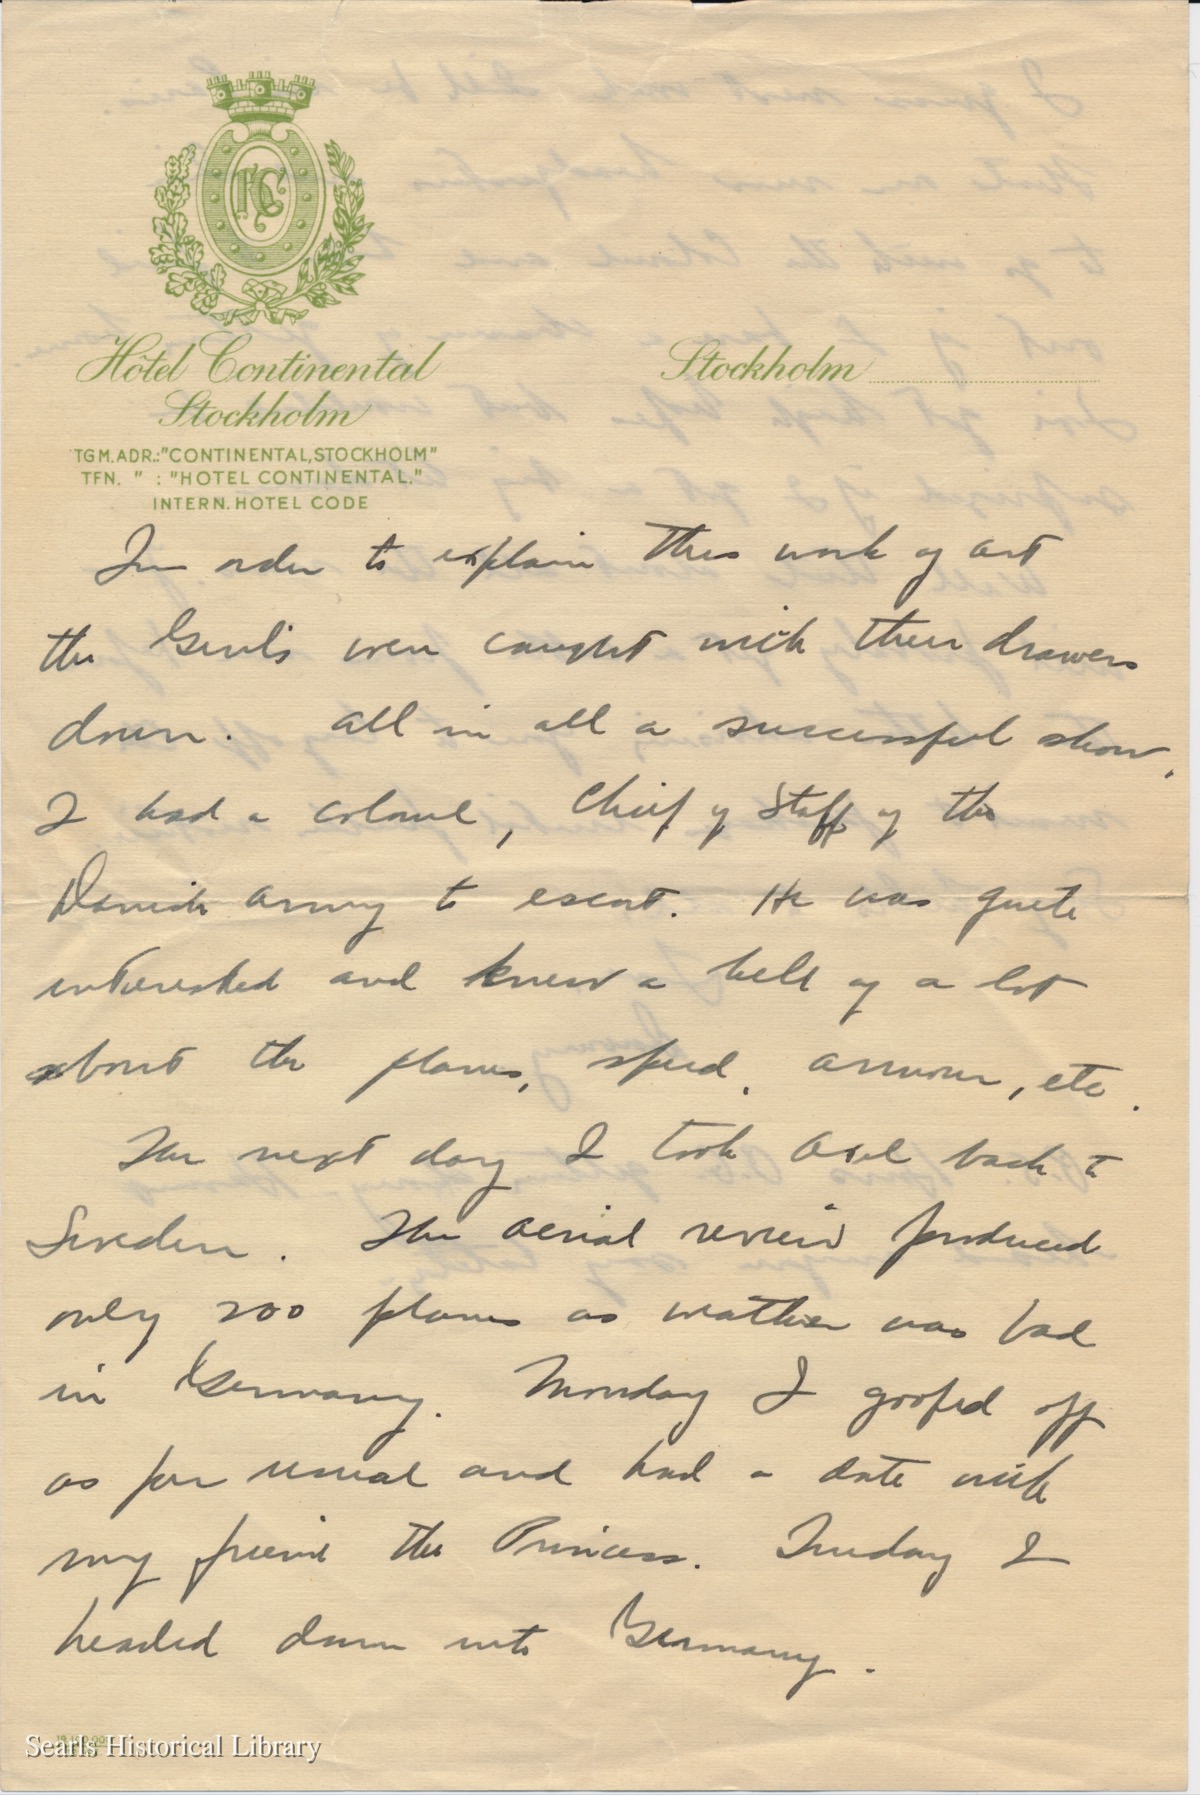 HC
Hôtel Continental
Stockholm
TGM.ADR.: "CONTINENTAL, STOCKHOLM"
TFN. " : "HOTEL CONTINENTAL."
INTERN. HOTEL CODE
Stockholm
In order to explain this work of art
the Genl's were caught with their drawers
down. All in all a successful show.
I had a colonel, Chief of Staff of the
Danish army to escort. He was quite
interested and knew a hell of a lot
about the planes, speed, armour, etc.
The next day I took Axel back to
Sweden. The aerial review produced
only 200 planes as weather was bad
in Germany. Monday I goofed off
as per usual and had a date with
my friend the Princess. Tuesday I
headed down into Germany.
Searls Historical Library